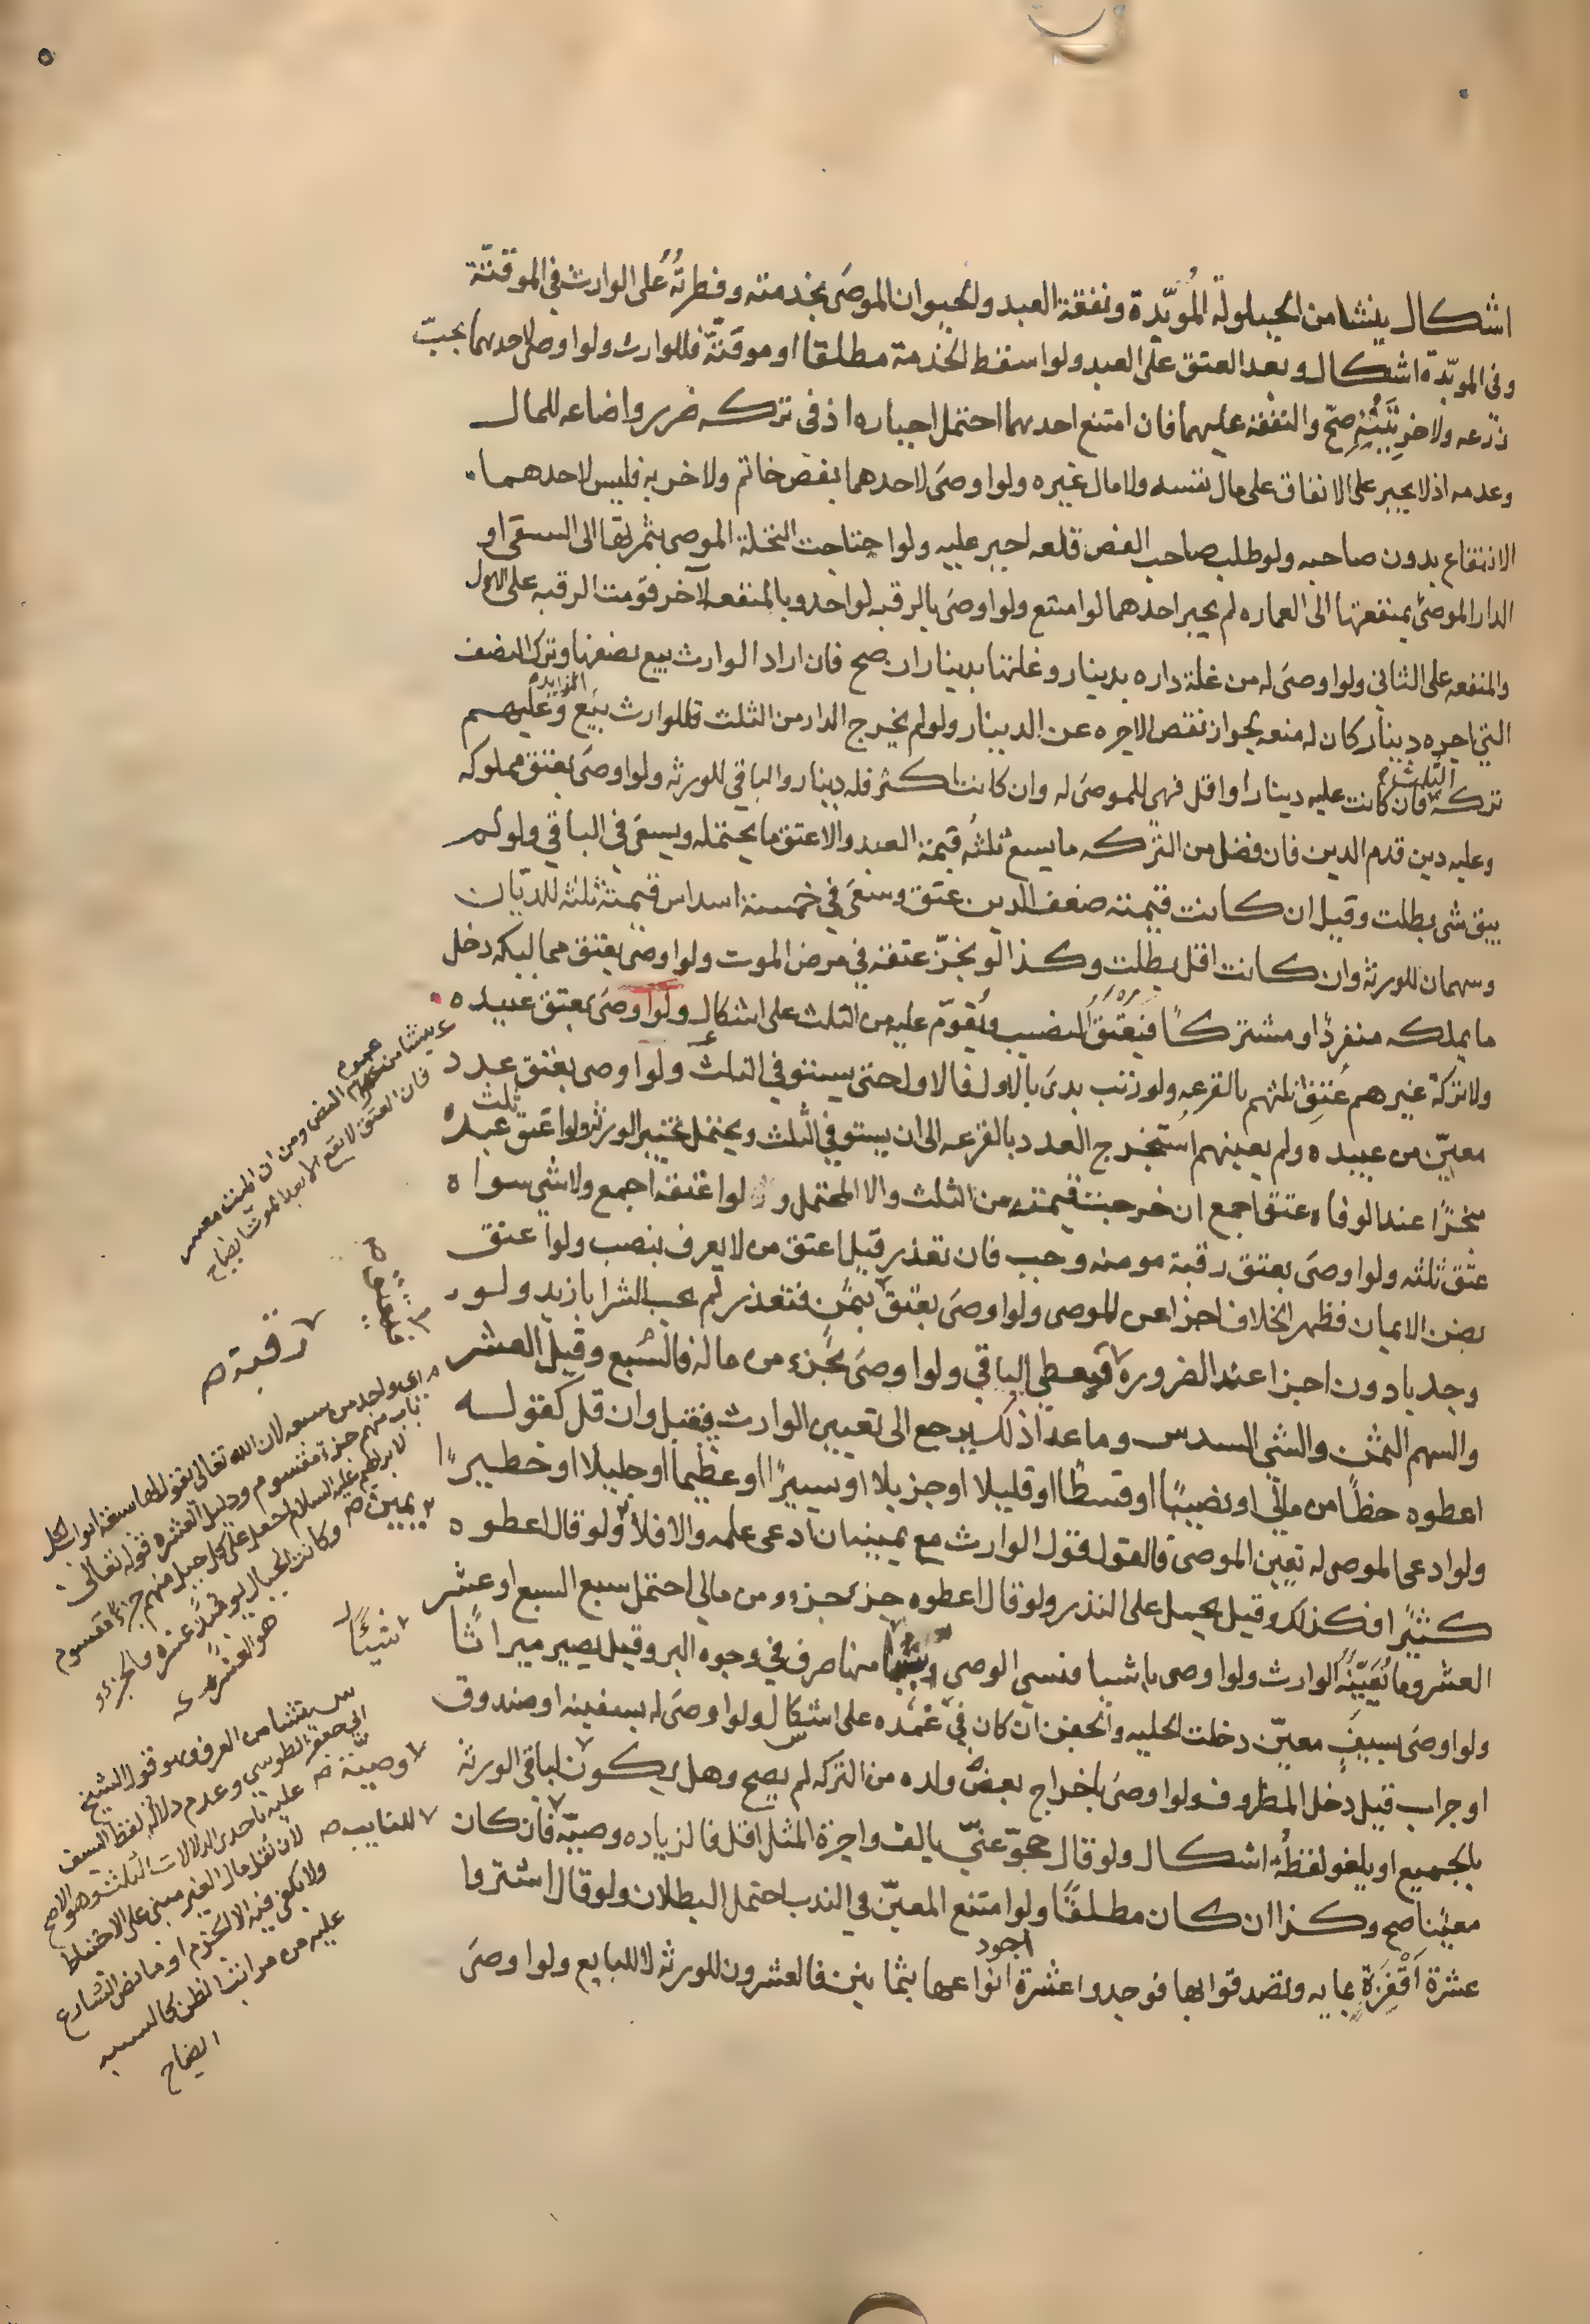 اشكال ينشا من الحيلولة المُوبّدة ونفقة العبد والحيوان الموصَى بخدمته وفطرتُهُ على الوارث في الموقتّة
وفى الموبّدة اشكال وبعد العتق على العبد ولو اسقط الخدمة مطلقا او موقتّة فللوارث ولو اوصى لاحدهما بحبّ
زرعه ولاخر بِتِبْنِهِ صحّ والنفقة عليهما فان امتنع احدهما احتمل اجباره اذ فى تركه ضرر واضاعه للمال
وعدمه اذ لا يجبر على الانفاق على مال نفسه ولا مال غيره ولو اوصَى لاحدهما بفصّ خاتم ولاخر به فليس لاحدهما
الانتفاع بدون صاحبه ولو طلب صاحب الفص قلعه اجبر عليه ولو احتاجت النخلة الموصى بثمرتها الى السقى او
الدار الموصَى بمنفعتها الى العماره لم يجبر احدهما لو امتنع ولو اوصَى بالرقبه لواحد وبالمنفعه لآخر قوّمت الرقبه على الاول
والمنفعه على الثانى ولو اوصَى له من غلة داره بدينار وغلتها ديناران صح فان اراد الوارث بيع نصفها وترك النصف
التي اجره دينار كان له منعه لجواز نقص الاجره عن الدينار ولو لم يخرج الدار من الثلث فللوارث بيع الزايده وعليهم
تركه الثلث فان كانت عليه دينارا او اقل فهى للموصَى له وان كانت اكثر فله دينار والباقي للورثه ولو اوصَى بعتق مملوكه
وعليه دين قدم الدين فان فضل من التركه ما يسع ثلثُه قيمة العبد والا عتق ما يحتمله ويسعَى فى الباقي ولو لم
يبق شى بطلت وقيل ان كانت قيمته ضعف الدين عتق وسعَى في خمسة اسداس قيمته ثلثه للديّان
وسهمان للورثه وان كانت اقل بطلت وكذا لو نجّز عتقه في مرض الموت ولو اوصَى بعتق مماليكه دخل
ما يملكه منفردًا او مشتركًا فيُعتَقُ النصيب ويُقوّم عليه من الثلث على اشكال ولو اوصَى بعتق عبيده
ولا تركة غيرهم عُتق ثلثهم بالقرعه ولو رتب بدئ بالاول فالاول حتى يستوفي الثلث ولو اوصى بعتق عدد
معيّن من عبيده ولم يعينهم اُستخرج العدد بالقرعه الى ان يستوفي الثلث ويحتمل تخيير الورثه ولو اعتق ثلث عبده
منجزًا عند الوفاه عتق اجمع ان خرجت قيمته من الثلث والا المحتمل ولو اعتقه اجمع ولا شي سواه
عُتق ثلثه ولو اوصَى بعتق رقبة مومنه وجب فان تعذر قيل اعتق من لا يعرف بنصب ولو اعتق
بظن الايمان فظهر الخلاف اجزا عن الموصى ولو اوصَى بعتق بثمن فتعذر لم يجب الشرا بازيد ولو
وجد بادون اجزا عند الضرورة فيعطى الباقي ولو اوصَى بجُزء من ماله فالسُبع وقيل العشر
والسهم الثمن والشى السدس وما عدا ذلك يرجع الى تعيين الوارث فيقبل وان قل كقوله
اعطوه حظًا من مالي او نصيبًا او قسطًا او قليلا او جزيلا او يسيرًا او عظيما او جليلا او خطيرًا
ولو ادعى الموصى له تعيّن الموصى فالقول قول الوارث مع يمينه ان ادعى علمه والا فلا ولو قال اعطوه
كثيرًا فكذلك وقيل يحمل على النذر ولو قال اعطوه جزء جزء من مالي احتمل سبع السبع او عشر
العشر وما يُعَيّنُهُ الوارث ولو اوصى باشيا فنسي الوصي منها صرف في وجوه البر وقيل يصير ميراثًا
ولو اوصَى بسيفٍ معيّن دخلت الحليه والجفن ان كان في غمده على اشكال ولو اوصَى له بسفينه او صندوق
او جراب قيل دخل المظروف ولو اوصَى باخراج بعض ولده من التركه لم يصح وهل يكون لباقي الورثه
بالجميع او يلغو لفظُهُ اشكال ولو قال حجوّ عنّي بالف واجرة المثل اقل فالزياده وصيّه فان كان
معيّنا صح وكذا ان كان مطلقًا ولو امتنع المعيّن في الندب احتمل البطلان ولو قال اشتروا
عشرة اَقْفِزَةٍ بمايه وتصدقوا بها فوجدوا عشرة اجود انواعها بثمانين فالعشرون للورثه لا للبايع ولو اوصَى
ع ينشا من عموم
النص ومن ان الميت معسر
فان العتق لا يقع الا بعد الموت ايضاح
رقبة صح
يمين صح
هو العشر
شيئًا
س ينشا من العرف وهو قول الشيخ
ابي جعفر الطوسي وعدم دلالة لفظ السيف
عليه باحدى الدلالات الثلث وهو الاصح
لان نقل مال الغير مبني على الاحتياط
ولا يكفي فيه الا الجزم او ما نص الشارع
عليه من مراتب الظن كالبينه
ايضاح
وصيّة صح
للنايب صح